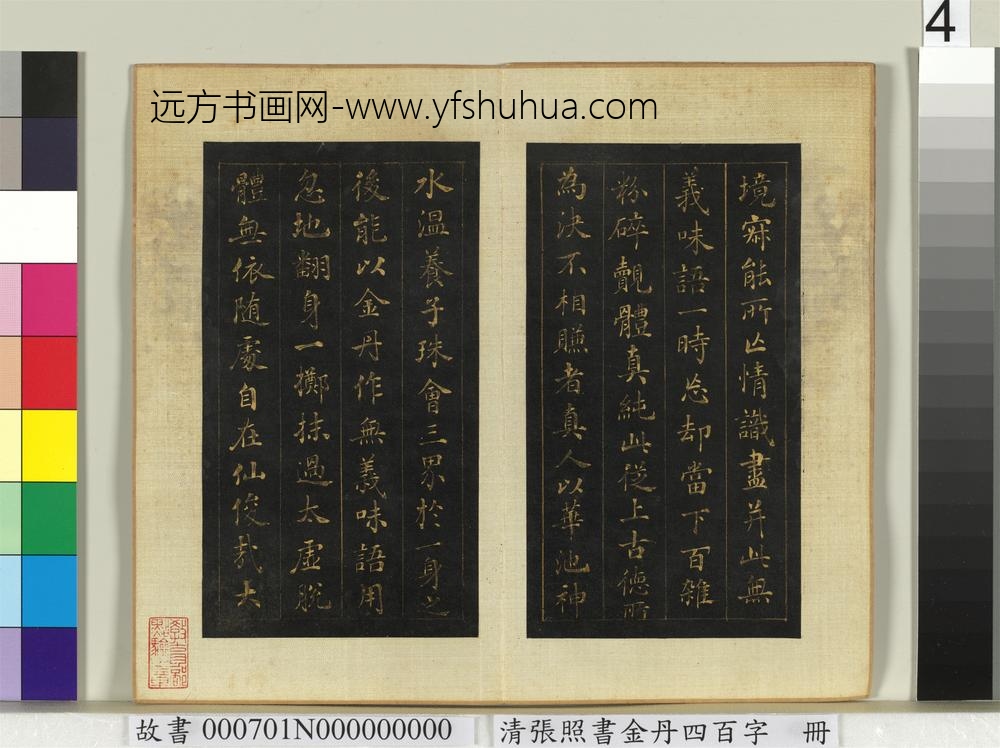 4
远方书画网-www.yfshuhua.com
境寂能所亡情識盡并此無
義味語一時忘却當下百雜
粉碎覿體真純此從上古德所
為決不相賺者真人以華池神
水温養子珠會三界於一身之
後能以金丹作無義味語用
忽地翻身一擲抹過太虛脫
體無依随處自在仙俊哉大
故書 000701N000000000
清張照書金丹四百字 冊